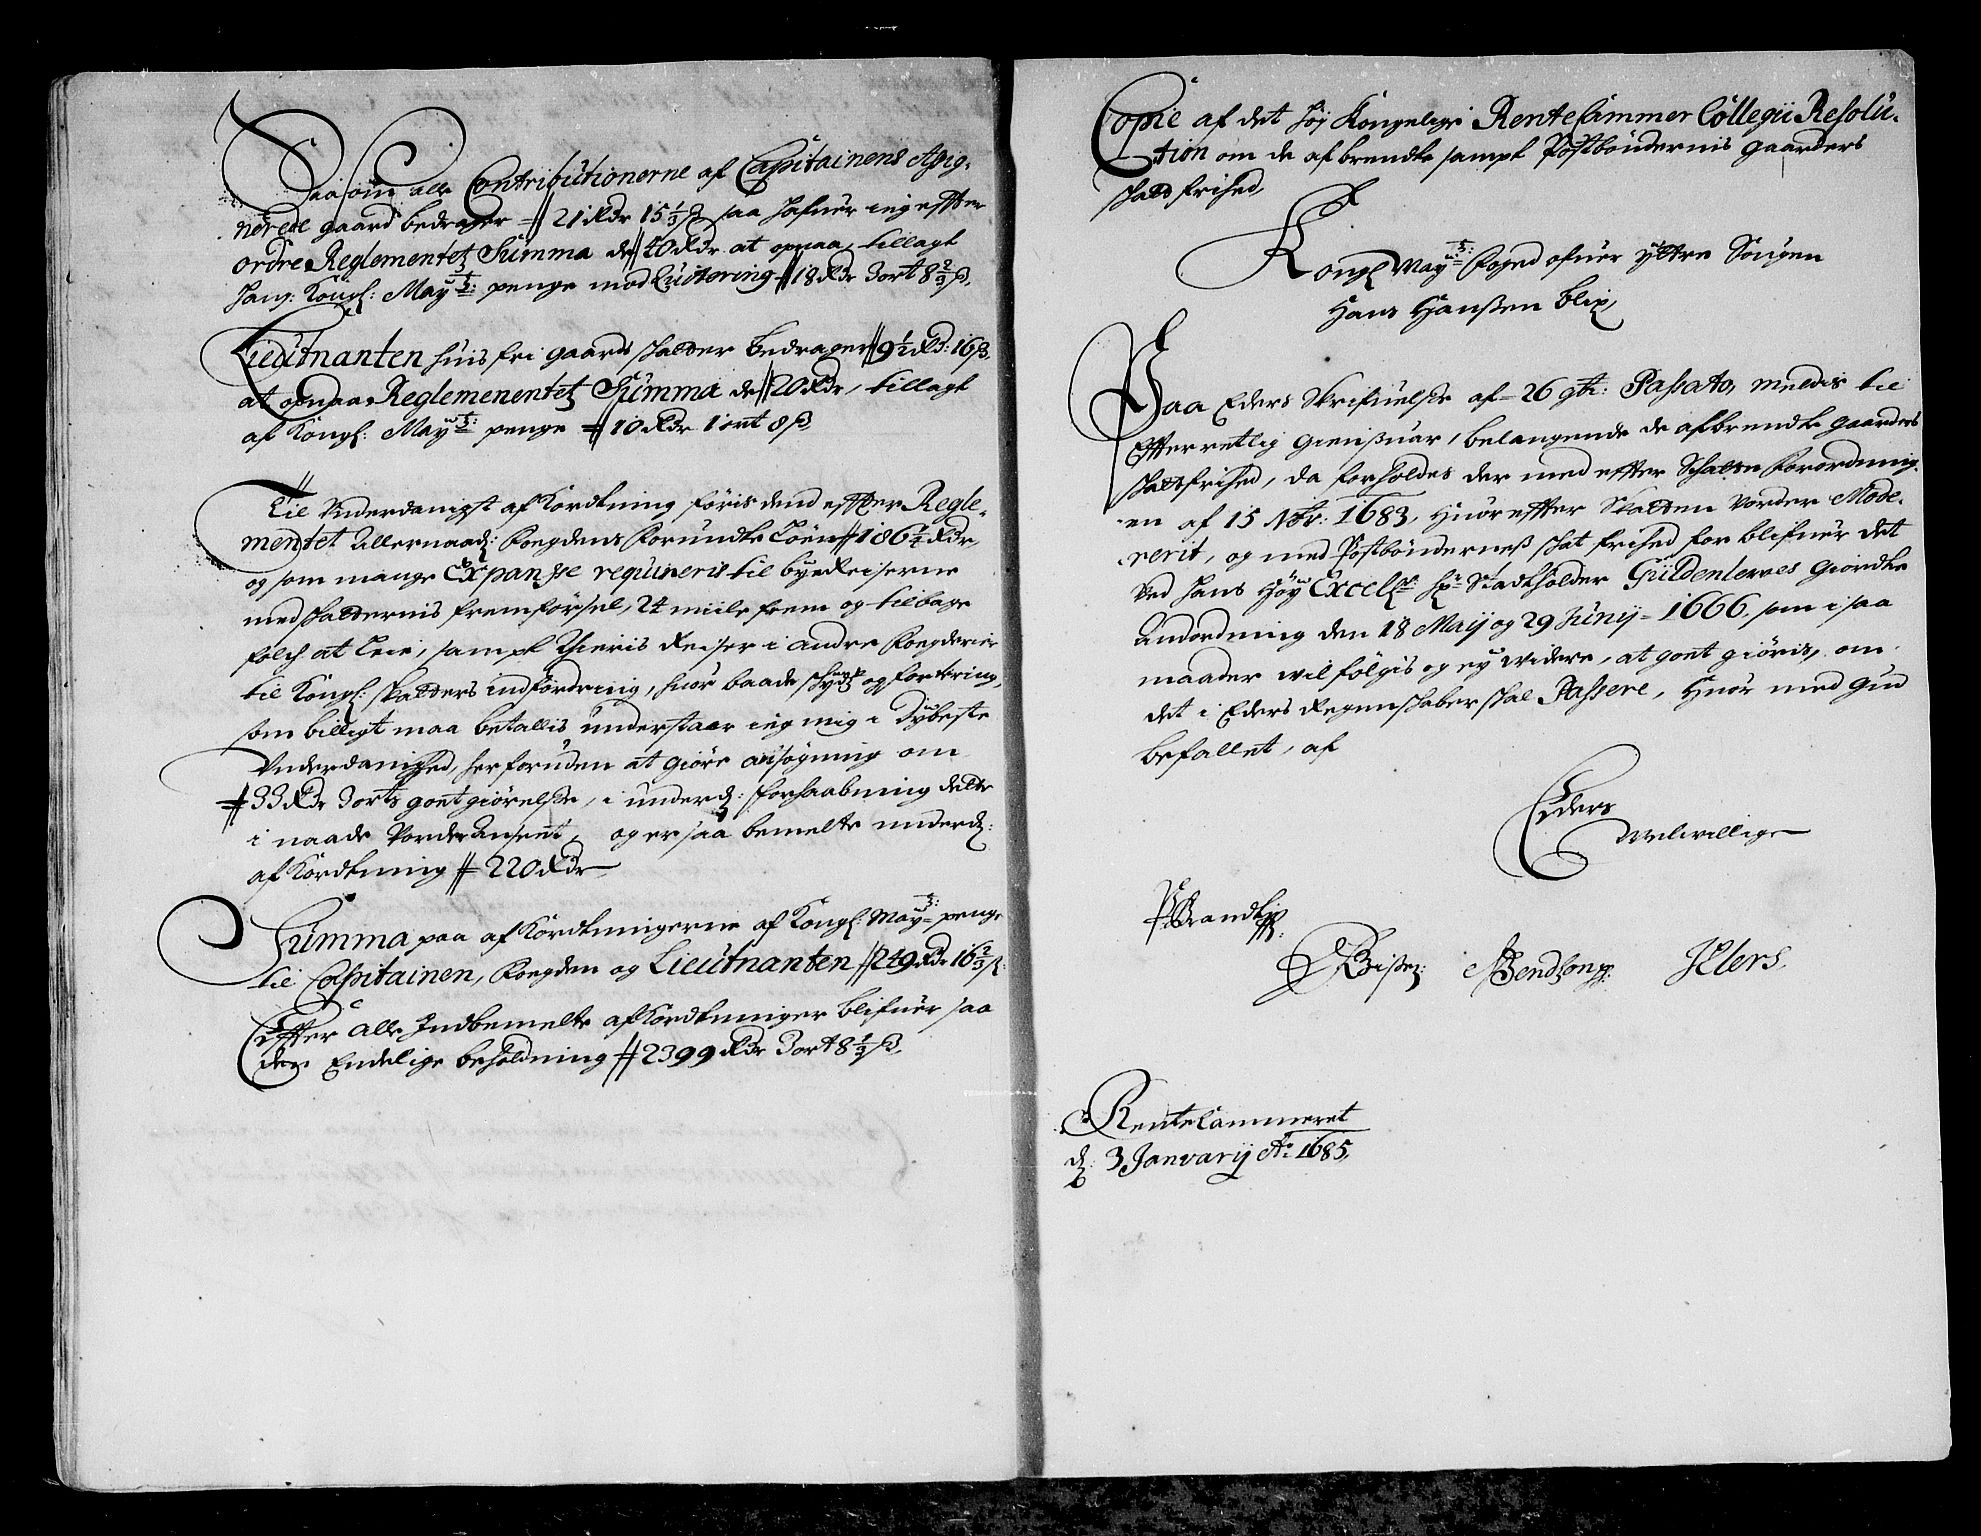 Saasom alle Contributionerne af Capitainens Assig-
nerede gaard bedrager # 21 Rdr 15 1/3 ß, saa hafuer ieg effter
ordre Reglementetz Summa de # 40 Rdr at opnaa, tillagt
Hans: Kongl: Mayts: penge mod Quitering # 18 Rdr 3 ort 8 2/3 ß,
Lieutnanten huis fri gaards skatter bedrager # 9 1/2 Rd: 16 ß,
at opnaa Reglemenentetz Summa de # 20 Rdr, tillagt
af Kongl: Mayts: penge # 10 Rdr 1 ort 8 ß,
Til Underdanigst afkordtning föris dend effter Regle-
mentet Allernaad: Foegdens Forundte Löen # 186 1/4 Rdr,
og som mange Expansse requireris til byeReiserne
med skatternis fremförsel, 24 miile frem og tilbage
folch at Leie, sampt Theris Reiser i andre Foegderier
til Kongl: skatters indfordring, huor baade skyds og fortering,
som billigt maa betallis understaar ieg mig i Dybeste
Underdanighed, herforuden at giöre ansögning om
# 33 Rdr 3 orts gootgiörelse, i underd: forhaabning dette
i naade Vorder Anseet, og er saa bemelte underd:
afkordtning # 220 Rdr
Summa paa afkordtningerne af Kongl: Mayts: penge
til Capitainen, Foegden og Lieutnanten # 249 Rdr 16 2/3 ß:
Effter alle Indbemelte afkordtninger blifuer saa
den Endelige beholdning # 2399 Rdr 3 ort 8 1/3 ß,
Copie af det höy Kongelige RenteCammer Collegii Resolu-
tion om de afbrendte sampt Postböndernis gaarders
skatts frihed,
Kongl Mayts: Foged ofuer yttre Sougen
Hans Hanßen Blix,
Paa Eders Skrifuelse af 26 9br: Passato, meldis til
Efterretlig Gienßuar, belangende de afbrendte gaarders
skattsfrihed, da forholdes der med effter Skatte Forordning-
en af 15 Nbr: 1683, huoreffter Skatten Vorder Mode-
rerit, og med Postbönderneß skat frihed forblifuer det
ved hans Höy Excell: Hr: Stadtholder Güldenlewes Giordte
Andordning den 18 Maij og 29 Junij 1666, som i saa
maader wil fölgis og ey widere, at goet giöris, om
det i Eders Regenskaber skal Passere, Huor med Gud
befallet, af
Eders
Welwillige
PBrandt
Rentecammeret
d: 3 Januarij Ao: 1685,